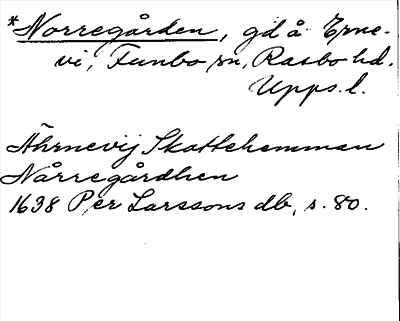 *Norregården, gd å Erne-
vi, Funbo sn, Rasbo hd.
Upps. l.
Åhrnevij Skattehemman
Nårregårdhen
1638 Per Larssons db, s. 80.